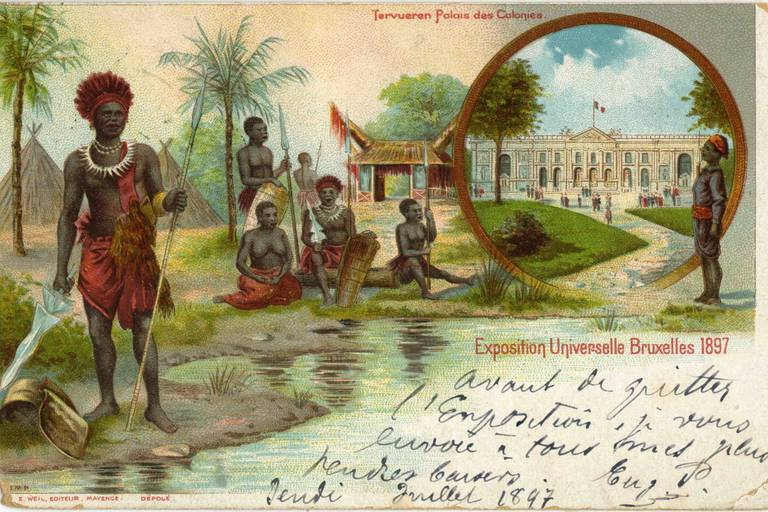 Tervueren Palais des Colonies.
Exposition Universelle Bruxelles 1897
avant de quitter
l'Exposition, je vous
envoie à tous mes plus
tendres baisers. Eug. P.
Juillet 1897
E. WEIL, EDITEUR, MAYENCE. DÉPOLÉ.